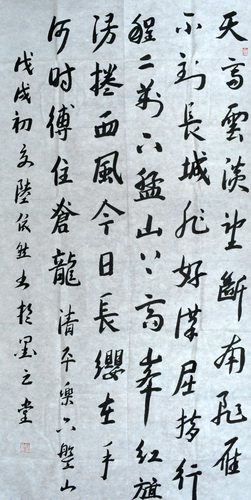 天高雲淡望斷南飛雁
不到長城非好漢屈指行
程二萬六盤山上高峯紅旗
漫捲西風今日長纓在手
何時縛住蒼龍 清平樂六盤山
戊戌初 陸依然書於墨之堂